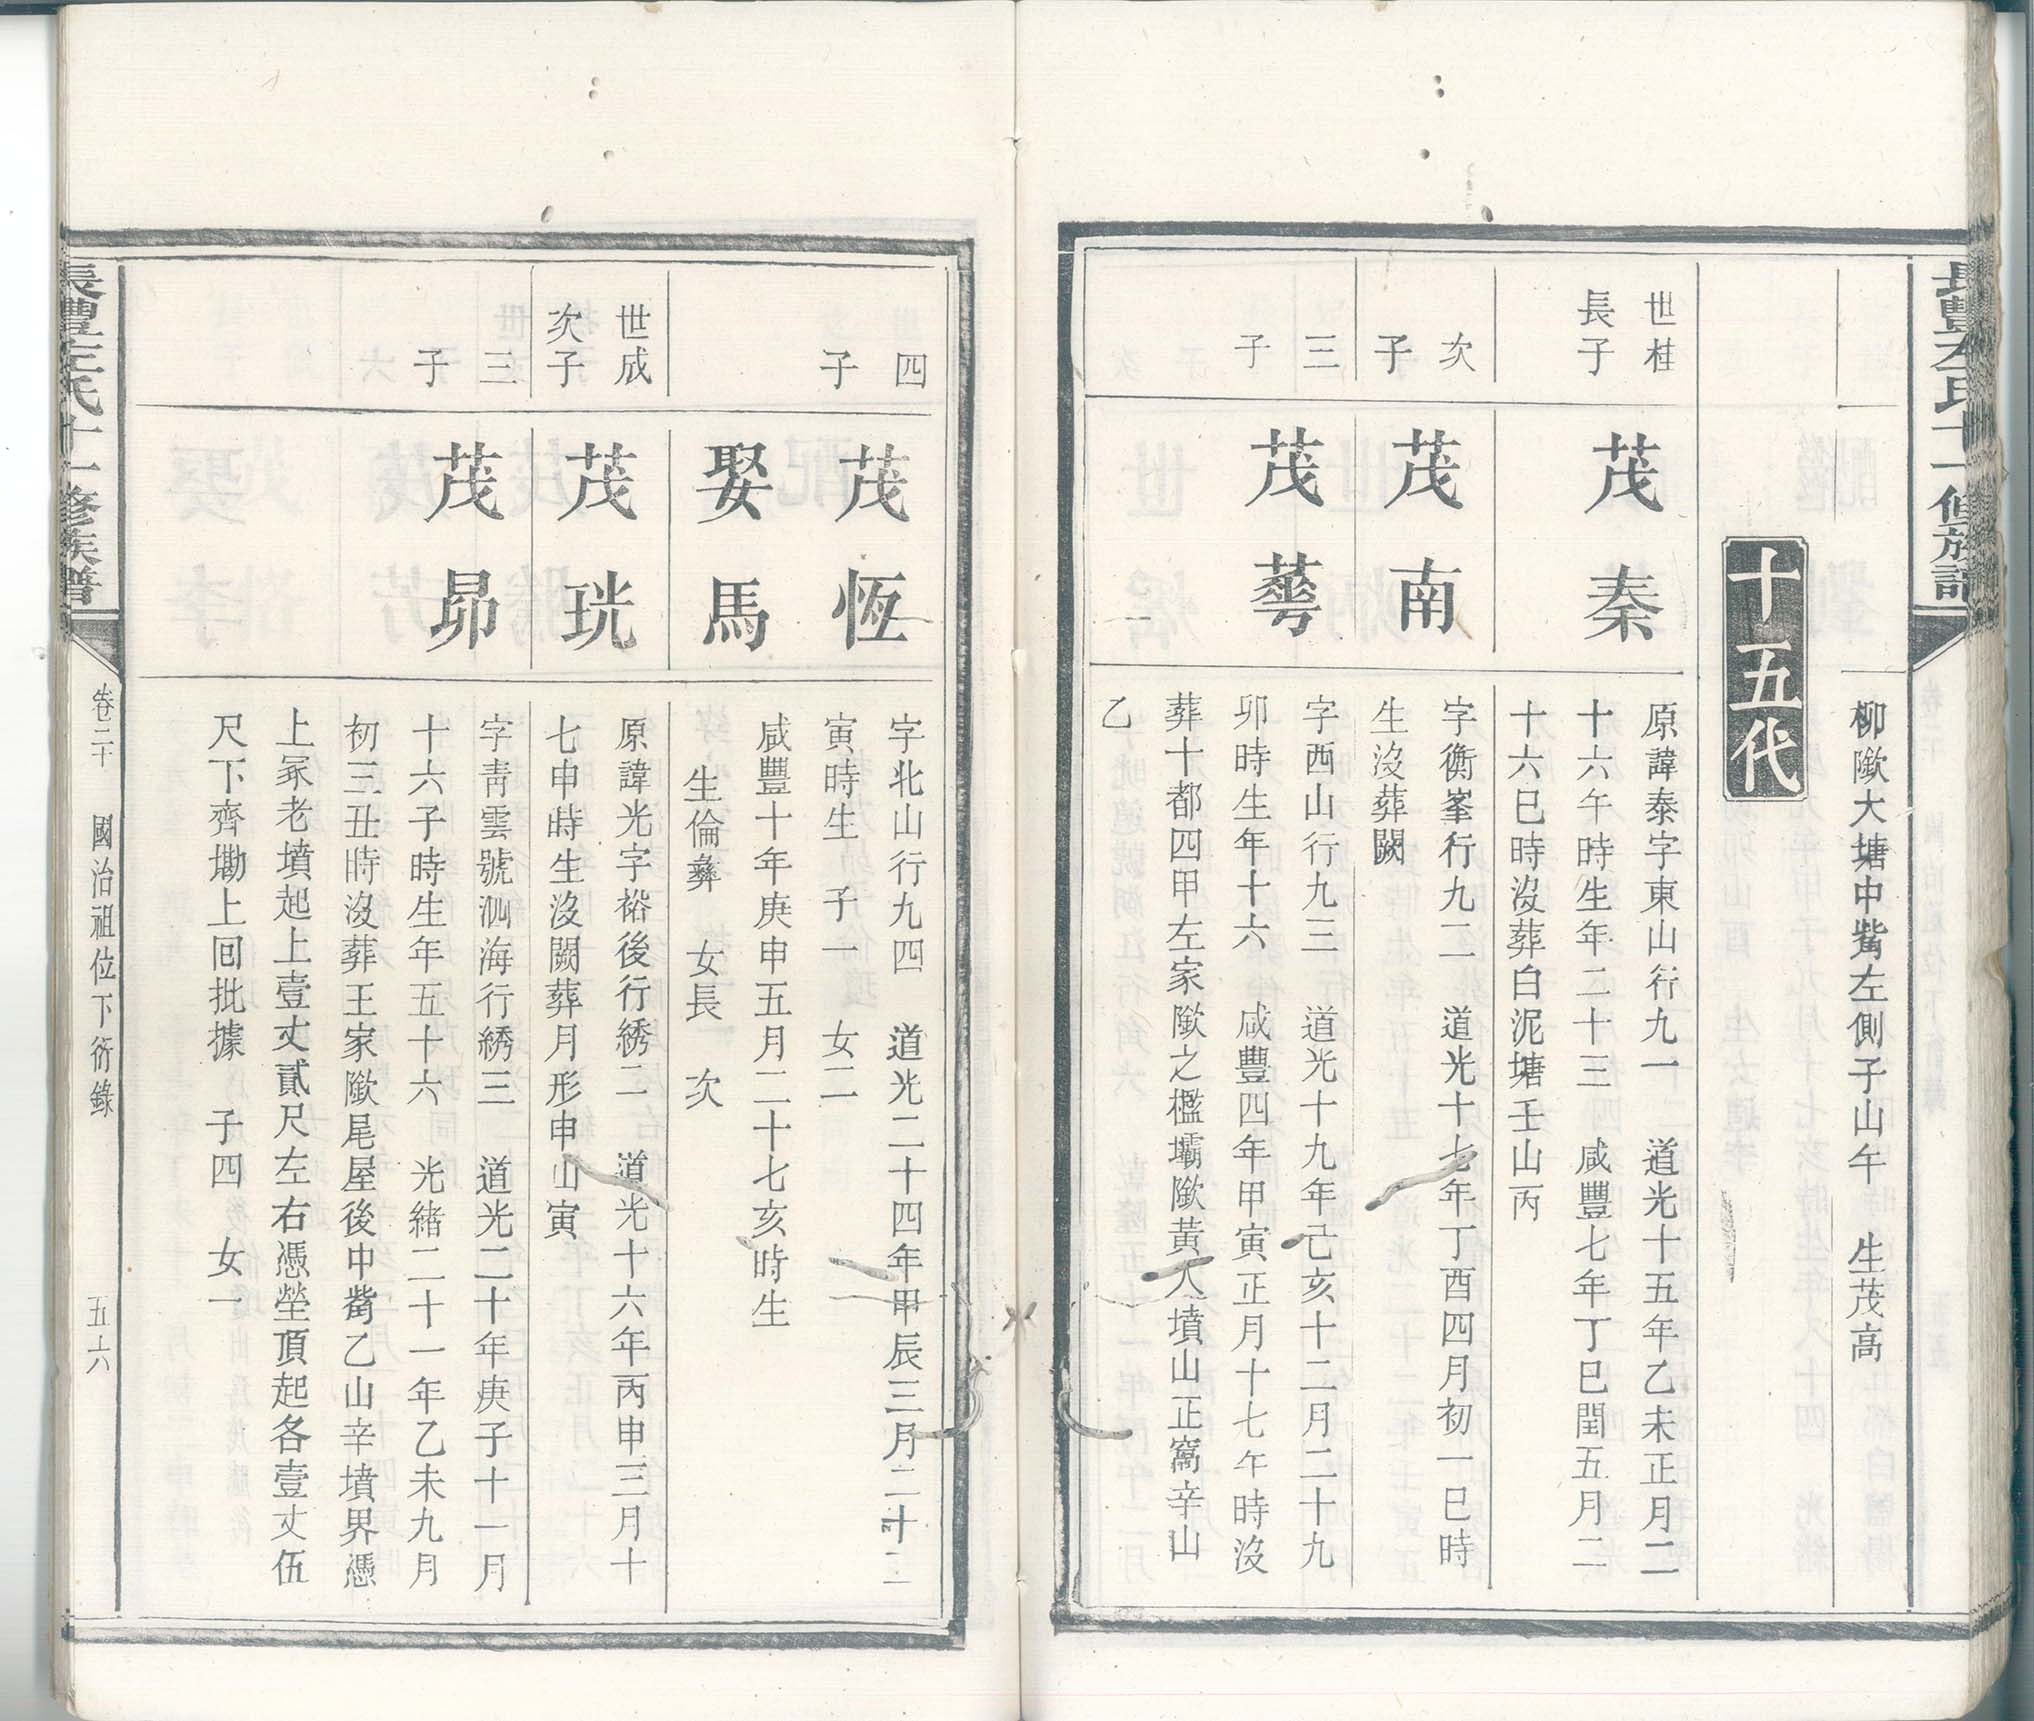 長豐左氏十一修族譜
柳隞大塘中觜左側子山午　生茂高
十五代
世桂
長子
茂秦
原諱泰字東山行九一　道光十五年乙未正月二
十六午時生年二十三　咸豐七年丁巳閏五月二
十六巳時沒葬白泥塘壬山丙
次
子
茂南
字衡峯行九二　道光十七年丁酉四月初一巳時
生沒葬闕
三
子
茂蕚
字西山行九三　道光十九年己亥十二月二十九
卯時生年十六　咸豐四年甲寅正月十七午時沒
葬十都四甲左家隞之檻壩隞黃人墳山正窩辛山
乙
四
子
茂恆
字北山行九四　道光二十四年甲辰三月二十二
寅時生　子一　女二
娶馬
咸豐十年庚申五月二十七亥時生
生倫彝　女長　次
世成
次子
茂珖
原諱光字裕後行綉二　道光十六年丙申三月十
七申時生沒闕葬月形申山寅
三
子
茂昴
字靑雲號泗海行綉三　道光二十年庚子十一月
十六子時生年五十六　光緖二十一年乙未九月
初三丑時沒葬王家隞尾屋後中觜乙山辛墳界憑
上冢老墳起上壹丈貳尺左右憑塋頂起各壹丈伍
尺下齊墈上囘批據　子四　女一
長豐左氏十一修族譜
卷二十　國治祖位下衍錄　五六